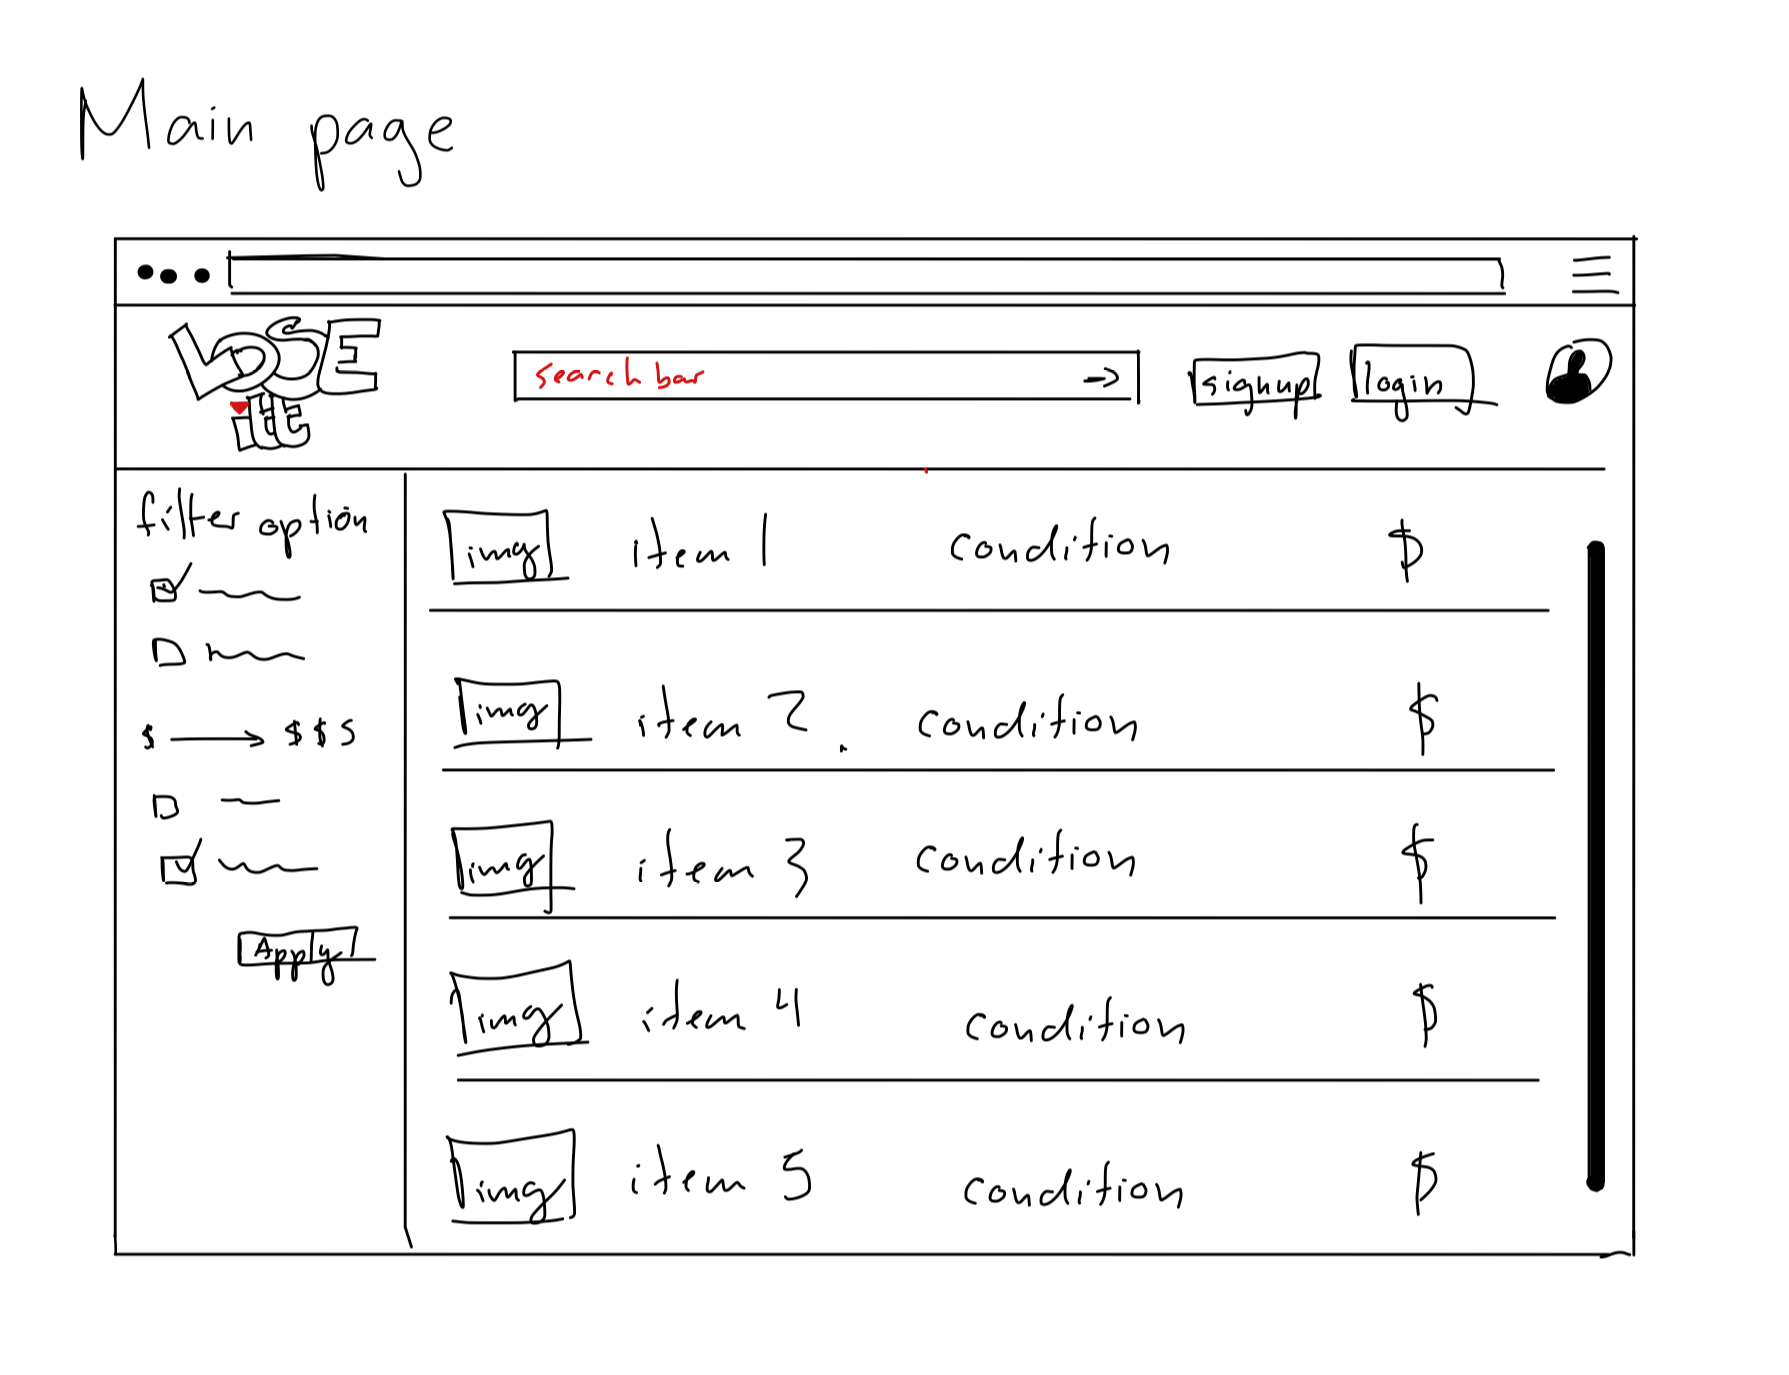 Main page
LOSE
itt
search bar ->
signup
login
filter option
$ → $ $ S
Apply
img item 1 condition $
img item 2. condition $
img item 3 condition $
img item 4 condition $
img item 5 condition $